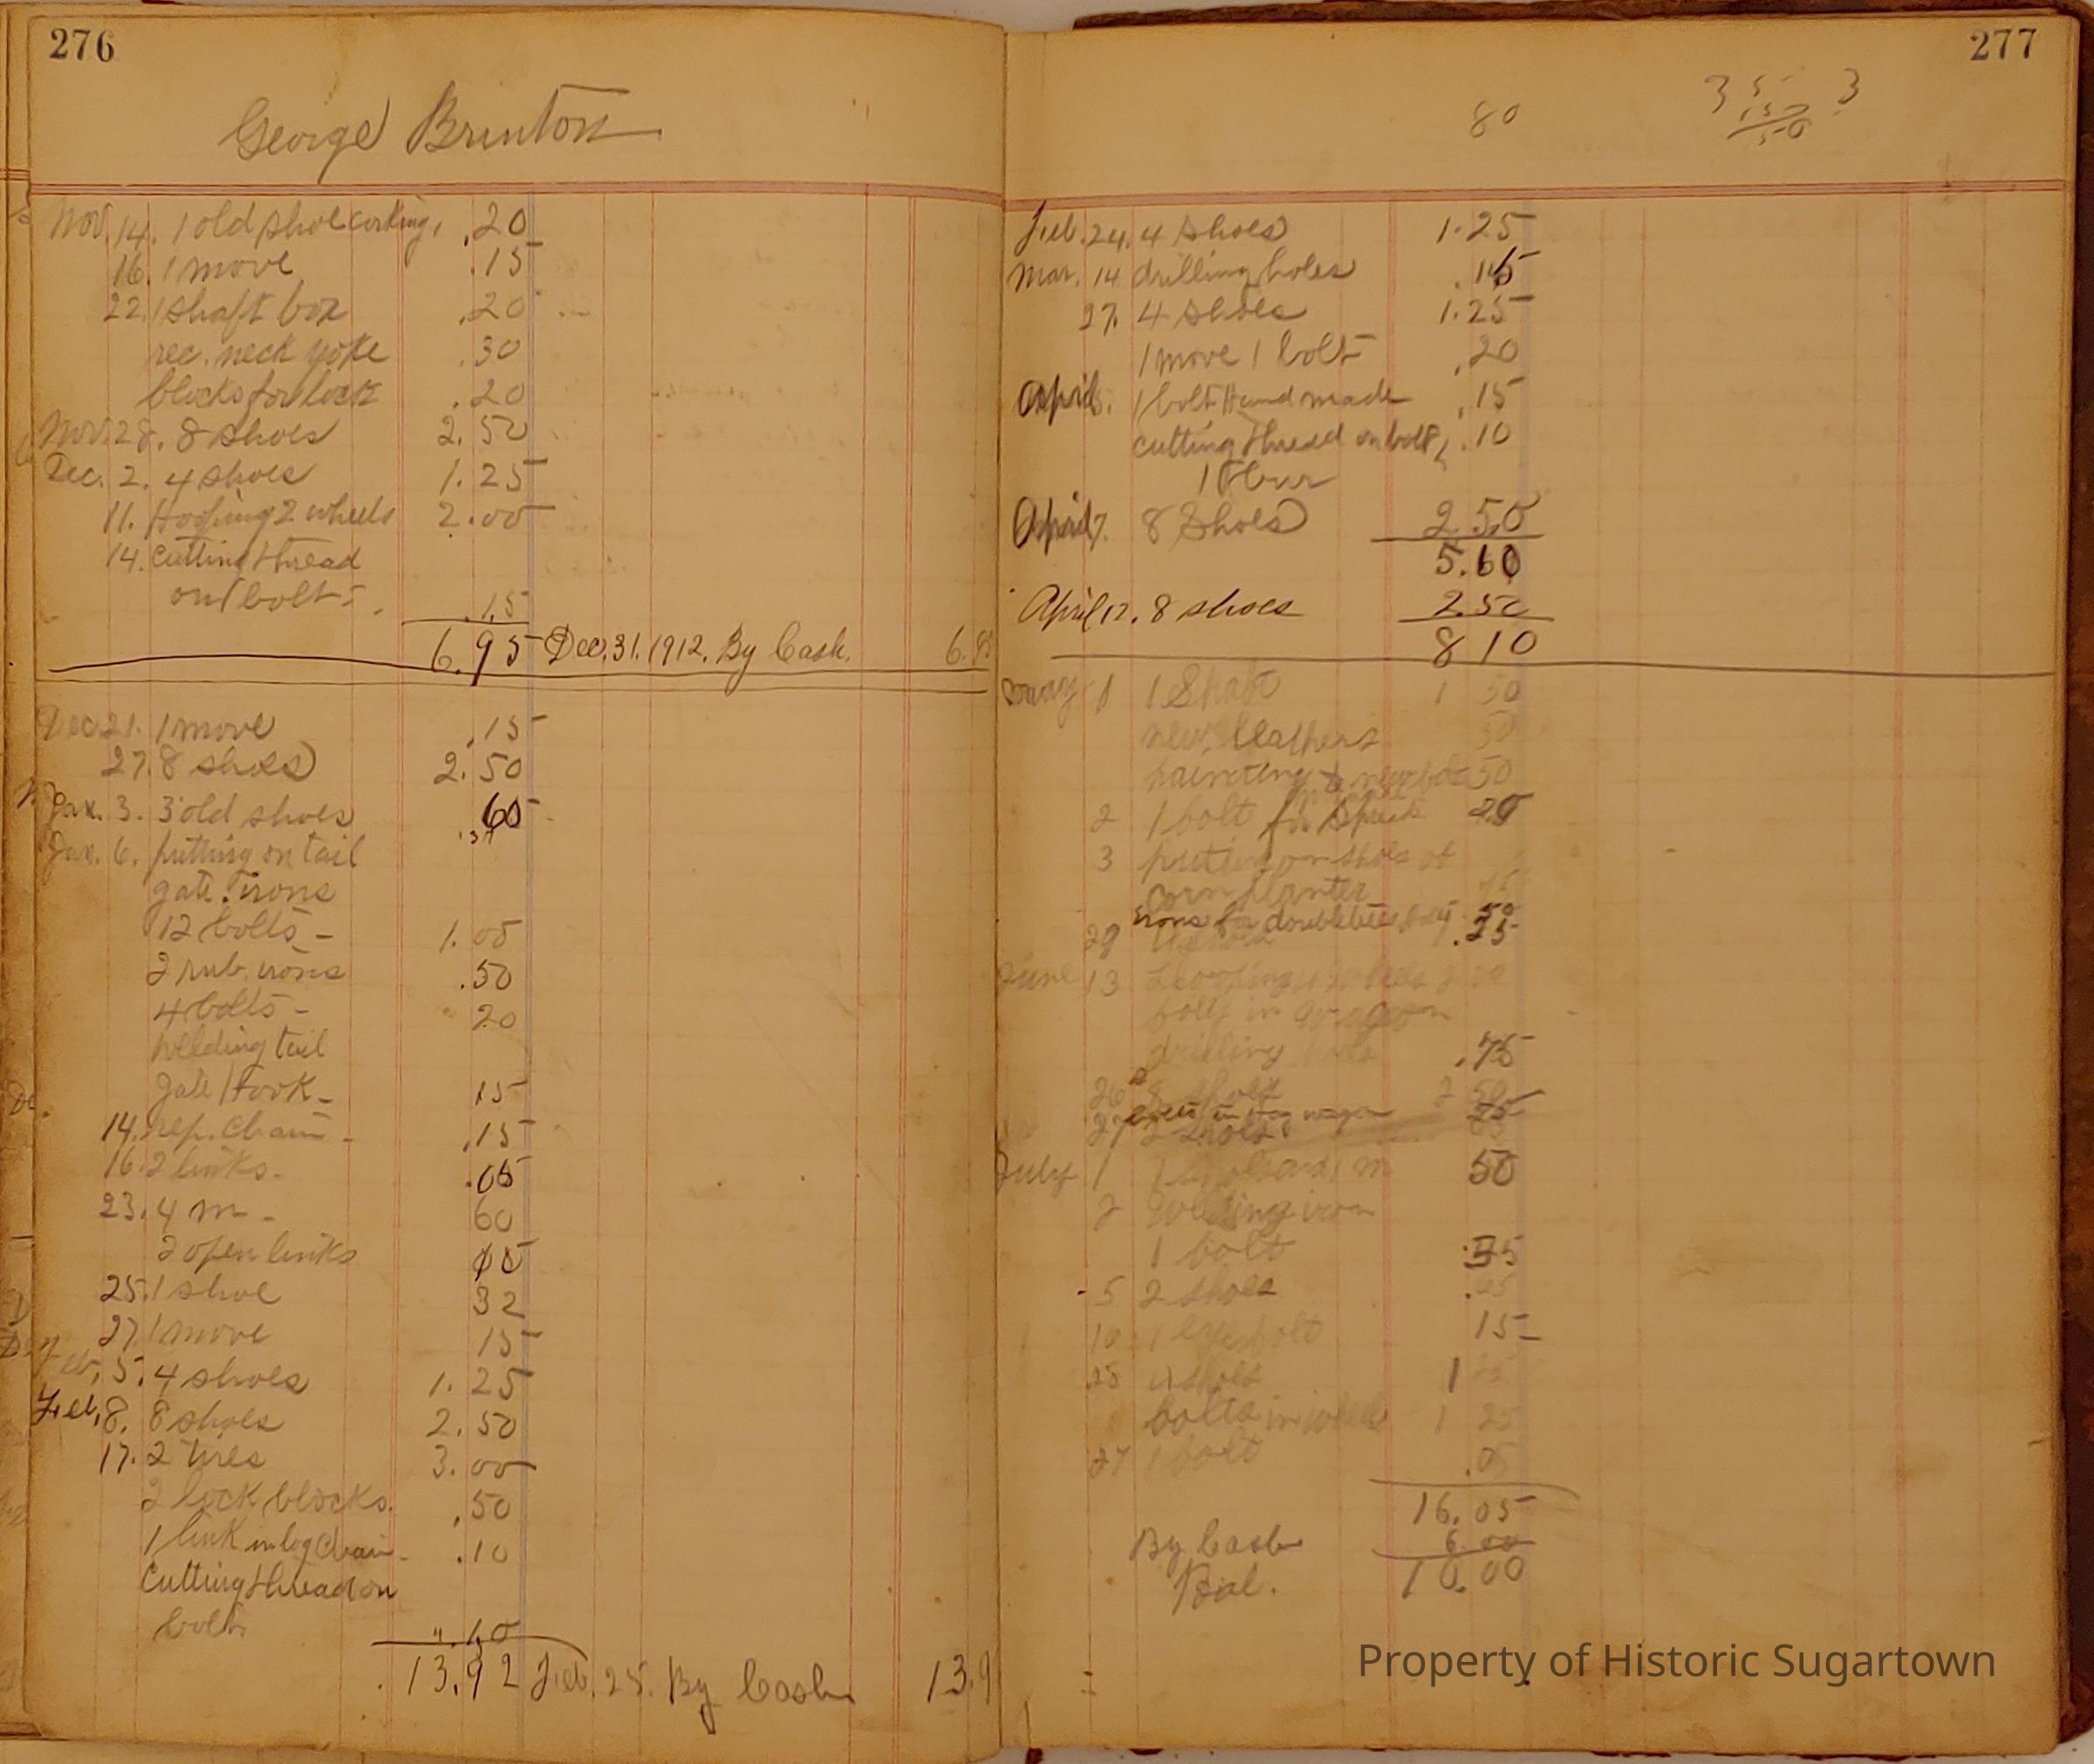 276
George Brinton
Nov. 14. 1 old shoe corking, .20
16. 1 move .15
22. 1 shaft box .20
rec. neck yoke .30
blocks for lock .20
Nov. 28. 8 shoes 2.50
Dec. 2. 4 shoes 1.25
11. Hooping 2 wheels 2.00
14. cutting thread
on 1 bolt - .15
6.95 Dec. 31. 1912. By Cash. 6.95
Dec. 21. 1 move .15
27. 8 shoes 2.50
Jan. 3. 3 old shoes 60
Jan. 6. putting on tail
gate irons
12 bolts - 1.00
2 rub irons .50
4 bolts - 20
Welding tail
gate Hook - 15
14. rep. chain - .15
16. 2 links - .05
23. 4 m - 60
2 open links 10
25. 1 shoe 32
27. 1 move 15
Feb. 5. 4 shoes 1.25
Feb. 8. 8 shoes 2.50
17. 2 tires 3.00
2 lock blocks. .50
1 link in log chain - .10
Cutting thread on
bolt .10
13.92 Feb. 25. By Cash 13.9
277
80
Feb. 24. 4 shoes 1.25
Mar. 14 drilling holes .15
27. 4 shoes 1.25
1 move 1 bolt .20
April 5. 1 bolt Hand made .15
cutting thread on bolt, .10
1 Bur
April 7. 8 Shoes 2.50
5.60
April 12. 8 shoes 2.50
8 10
May 1 1 Shaft 1 50
new leathers 50
painting 50
2 1 bolt for
3 putting on shoe of
corn planter
irons for doubletree
29 .25
June 13
bolts in wagon
drilling .75
26 8 shoes 2 50
27 2 shoes
July 1 50
2 Welding iron
1 bolt .35
5 2 shoes
10 1 eye bolt 15
25 4 shoes 1 25
bolts in wheel 1 25
27 1 bolt .05
16.05
By Cash 6.00
Bal. 10.00
Property of Historic Sugartown